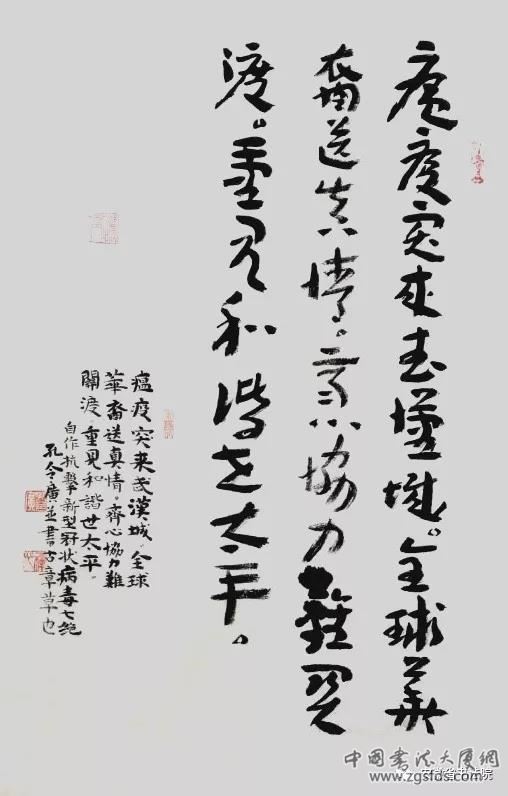 瘟疫突来武漢城。全球華
裔送真情。齊心協力難関
渡。重見和諧世太平。
瘟疫突来武漢城、全球
華裔送真情、齊心協力難
關渡、重見和諧世太平。
自作抗擊新型冠状病毒七绝
孔令廣並書古章草也
中國書法大厦網
www.zgsfds.com